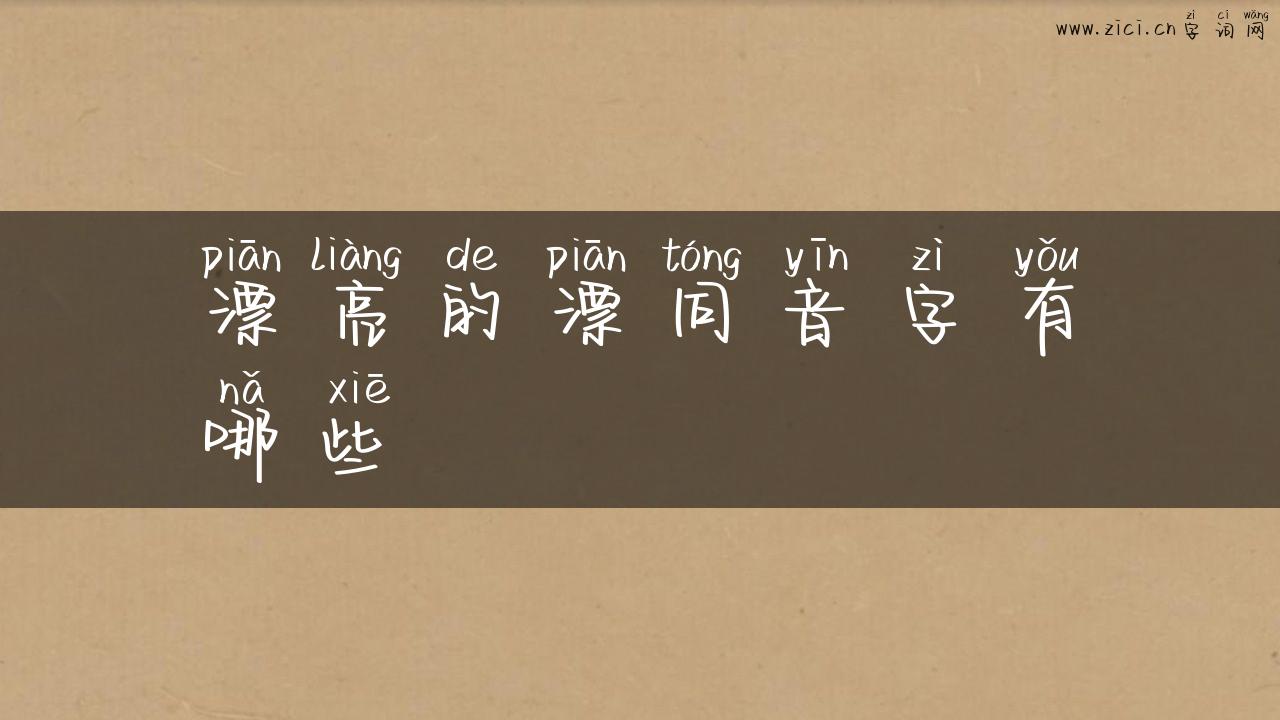 zì cí wǎng
www.zici.cn 字词网
piān liàng de piān tóng yīn zì yǒu
漂亮的漂同音字有
nǎ xiē
哪些